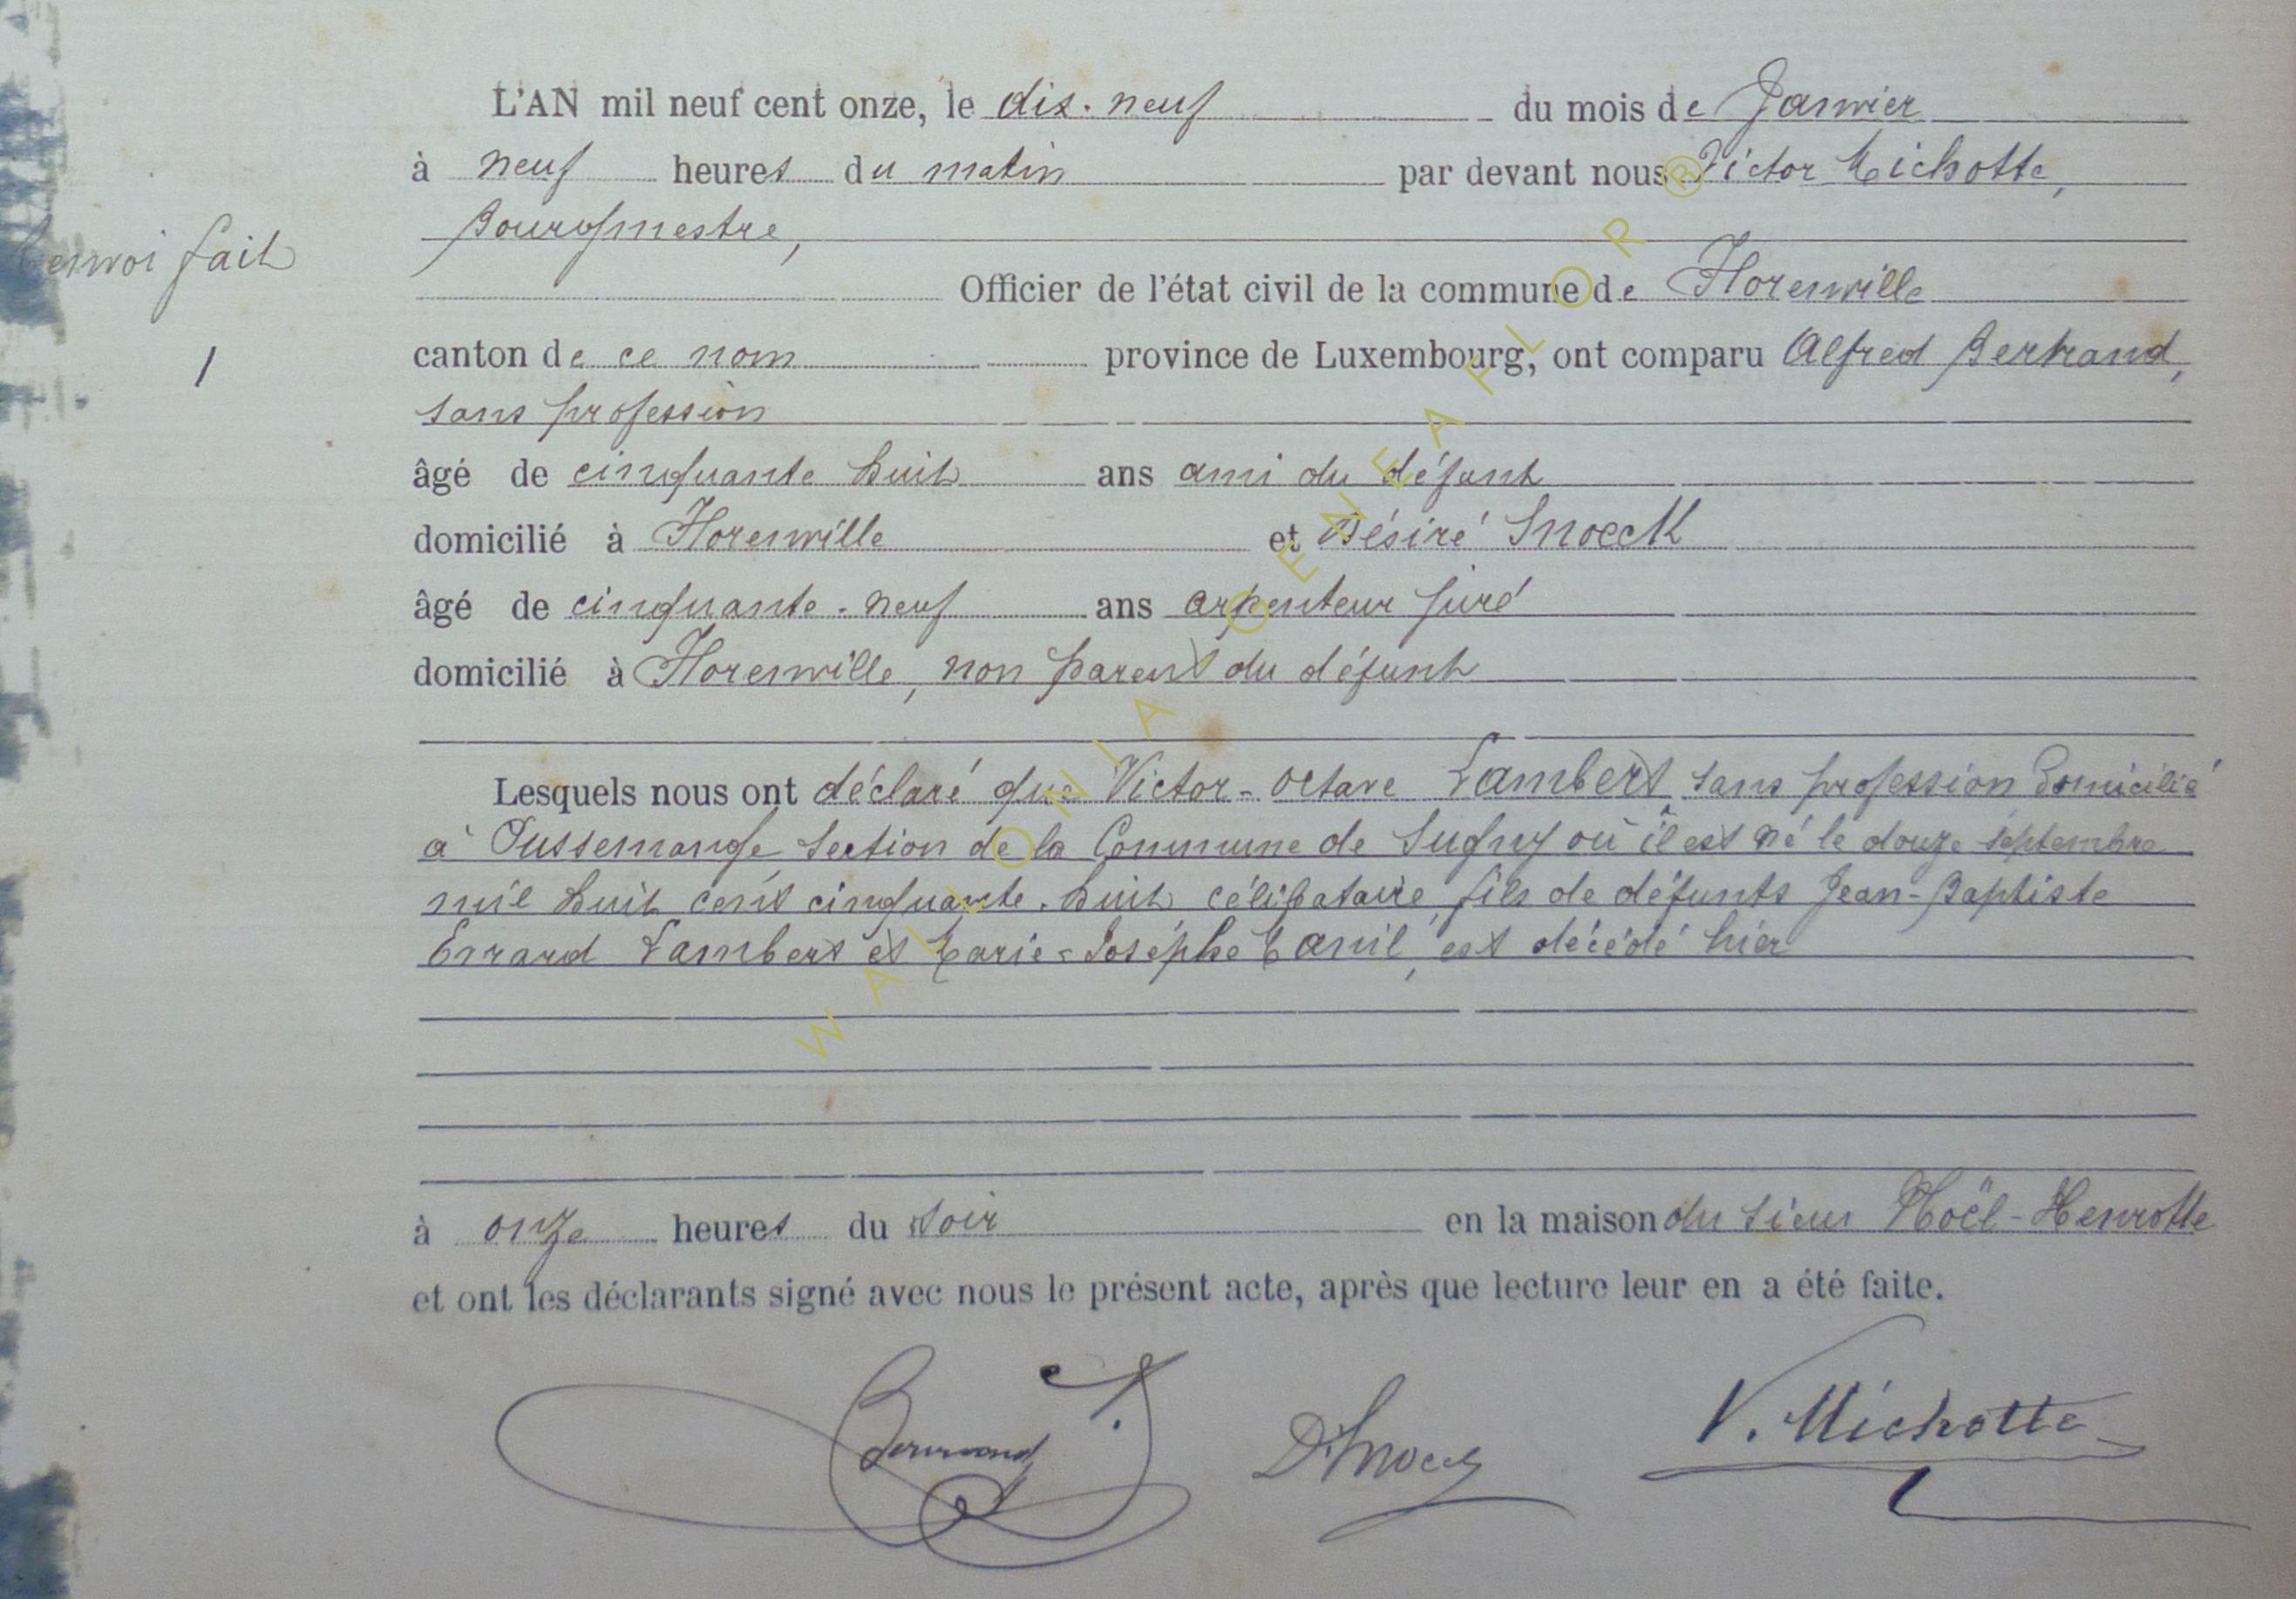 L'AN mil neuf cent onze, le dix-neuf du mois de Janvier
à neuf heures du matin par devant nous Victor Michotte,
Bourgmestre,
envoi fait
Officier de l'état civil de la commune de Florenville
1
canton de ce nom province de Luxembourg, ont comparu Alfred Bertrand,
sans profession
âgé de cinquante huit ans ami du défunt
domicilié à Florenville et Désiré Snoeck
âgé de cinquante-neuf ans arpenteur juré
domicilié à Florenville, non parent du défunt
Lesquels nous ont déclaré que Victor-Octave Lambert, sans profession domicilié
à Pussemange, section de la Commune de Sugny où il est né le douze septembre
mil huit cent cinquante-huit célibataire, fils de défunts Jean-Baptiste
Evrard Lambert et Marie-Josèphe Manil, est décédé hier
à onze heures du soir en la maison du sieur Noël-Henrotte
et ont les déclarants signé avec nous le présent acte, après que lecture leur en a été faite.
DSnoeck V. Michotte
WALLONIA GENEAFLOR ®